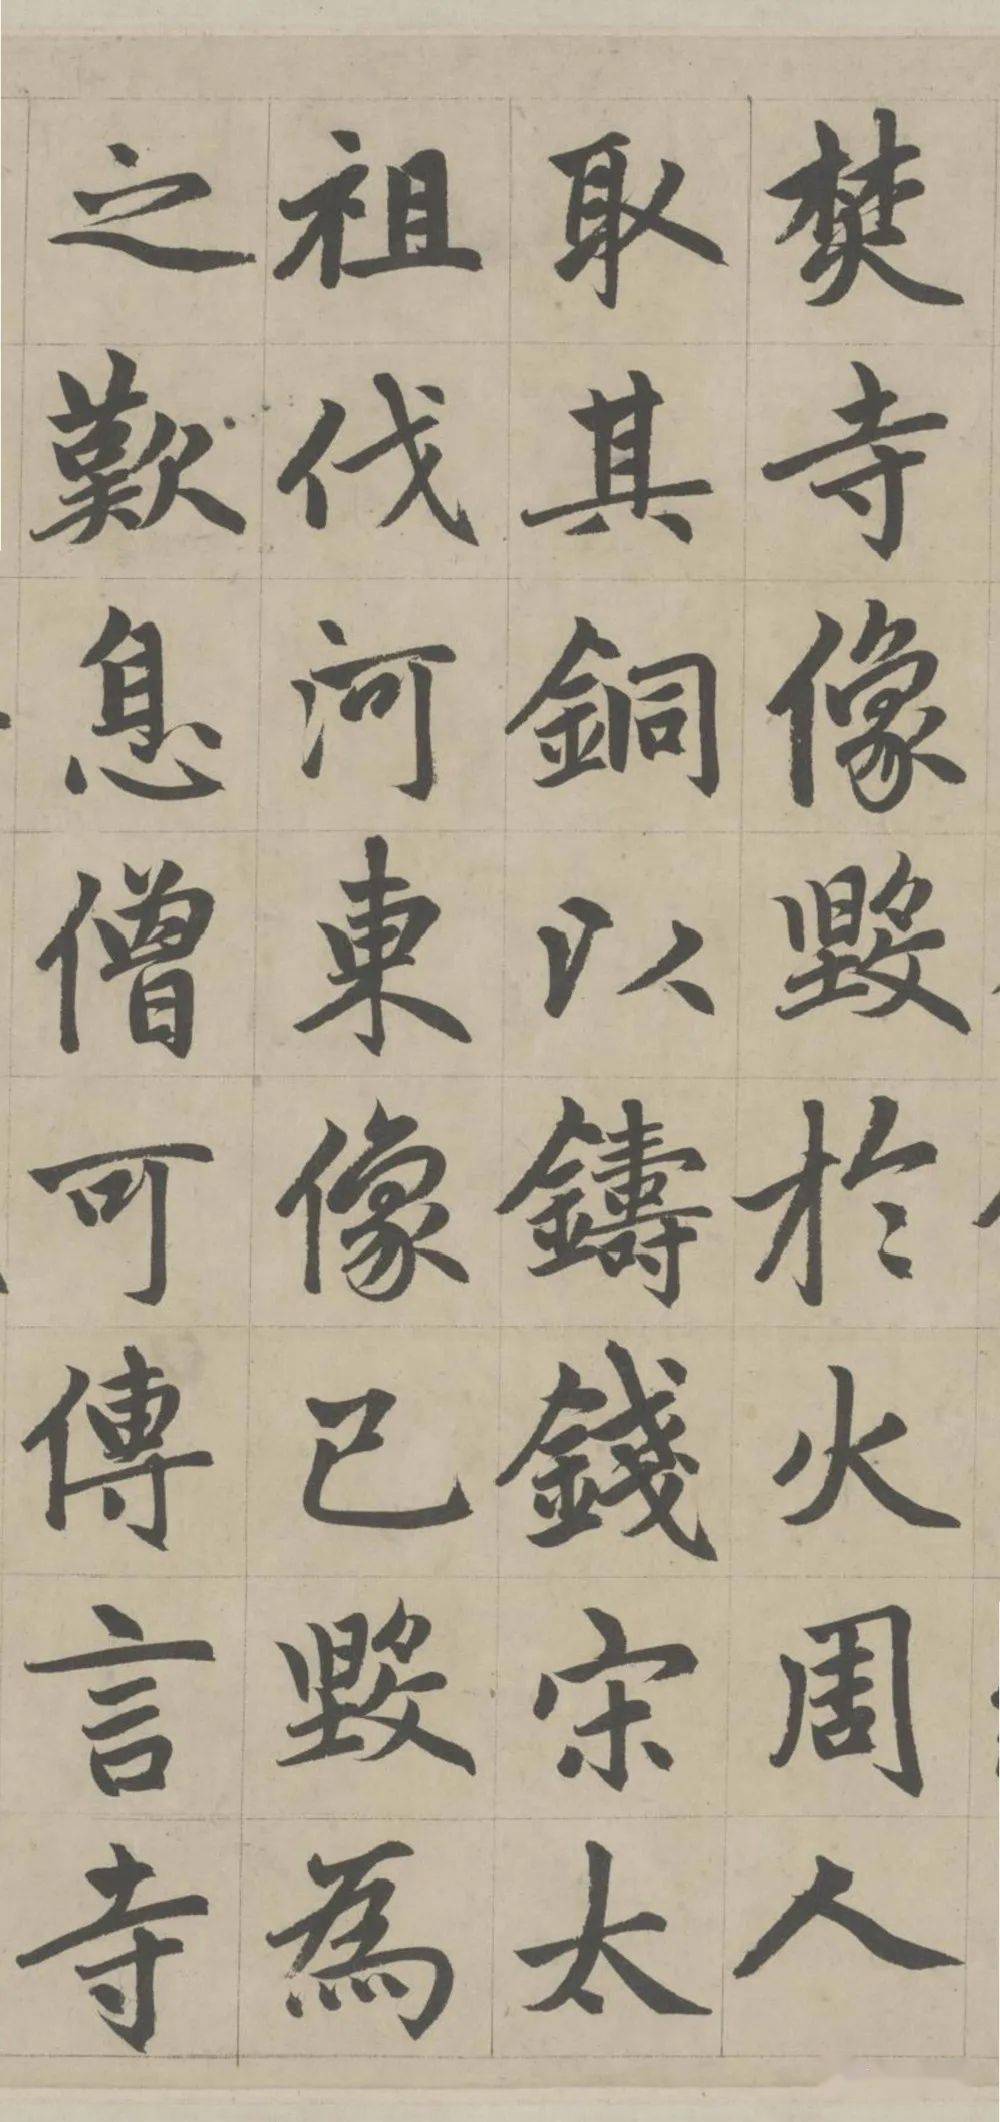 焚寺像毀於火周人
取其銅以鑄錢宋太
祖伐河東像已毀為
之歎息僧可傳言寺